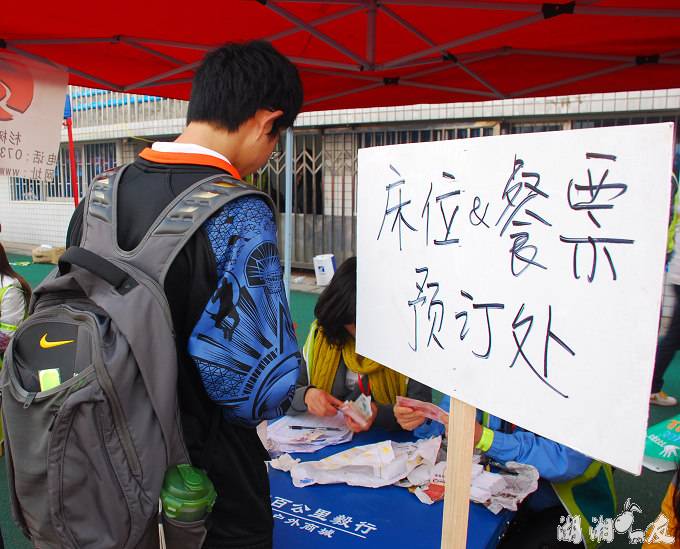 床位&餐票
预订处
杉树
电话：073
网址：w
百公里毅行
户外商城
湖湘 友